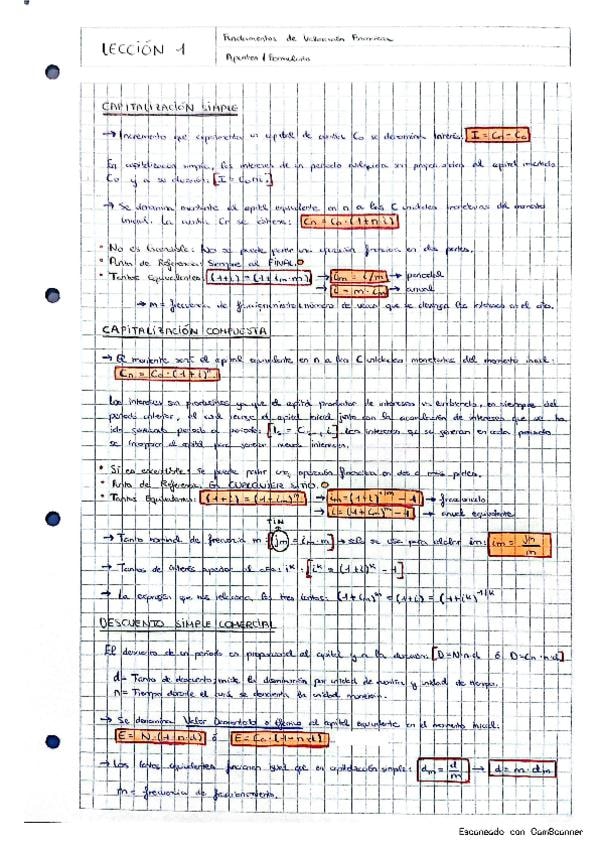 LECCIÓN 1
Fundamentos de Valoración Financiera
Apuntes / Formulario
CAPITALIZACIÓN SIMPLE
→ Incremento que experimenta un capital de cuantía C₀ se denomina interés: I = Cn - C₀
En capitalización simple, los intereses de un periodo cualquiera son proporcionales al capital invertido
C₀ y a su duración: [I = C₀·n·i]
→ Se denomina montante al capital equivalente en n a los C unidades monetarias del momento
inicial. La cuantía Cn se obtiene: Cn = C₀·(1+n·i)
• No es escindible: No se puede partir una operación financiera en dos partes.
• Punto de Referencia: Siempre al FINAL.
• Tantos Equivalentes: (1+i) = (1+im·m) → im = i/m → periodal
→ i = m·im → anual
→ m = frecuencia de fraccionamiento (número de veces que se devengan los intereses en el año.
CAPITALIZACIÓN COMPUESTA
→ El montante será el capital equivalente en n a los C unidades monetarias del momento inicial:
Cn = C₀·(1+i)ⁿ
Los intereses son productivos ya que el capital productor de intereses va cambiando, es siempre del
periodo anterior, el cual recoge el capital inicial junto con la acumulación de intereses que se ha
ido generando periodo a periodo: Los intereses que se generan en cada periodo
se incorporan al capital para generar nuevos intereses.
• Sí es escindible: Se puede partir una operación financiera en dos o más partes.
• Punto de Referencia: EN CUALQUIER SITIO.
• Tantos Equivalentes: (1+i) = (1+im)ᵐ → im = (1+i)^1/m - 1 → fraccionado
→ i = (1+im)ᵐ - 1 → anual equivalente
TIN
→ Tanto nominal de frecuencia m [jm = im·m] → sólo se usa para calcular im: im = jm/m
→ Tantos de interés iᵏ: [iᵏ = (1+i)ᵏ - 1]
→ La expresión que nos relaciona los tres tantos: (1+im)ᵐ = (1+i) = (1+iᵏ)^1/k
DESCUENTO SIMPLE COMERCIAL
El descuento de un periodo es proporcional al capital y a la duración: [D=N·n·d ó D=Cn·n·d]
d = Tanto de descuento; mide la disminución por unidad de cuantía y unidad de tiempo.
n = Tiempo durante el cual se descuenta la unidad monetaria.
→ Se denomina Valor Descontado o Efectivo al capital equivalente en el momento inicial:
E = N·(1-n·d) ó E = Cn·(1-n·d)
→ Los tantos equivalentes funcionan igual que en capitalización simple: dm = d/m → d = m·dm
m = frecuencia de fraccionamiento.
Escaneado con CamScanner